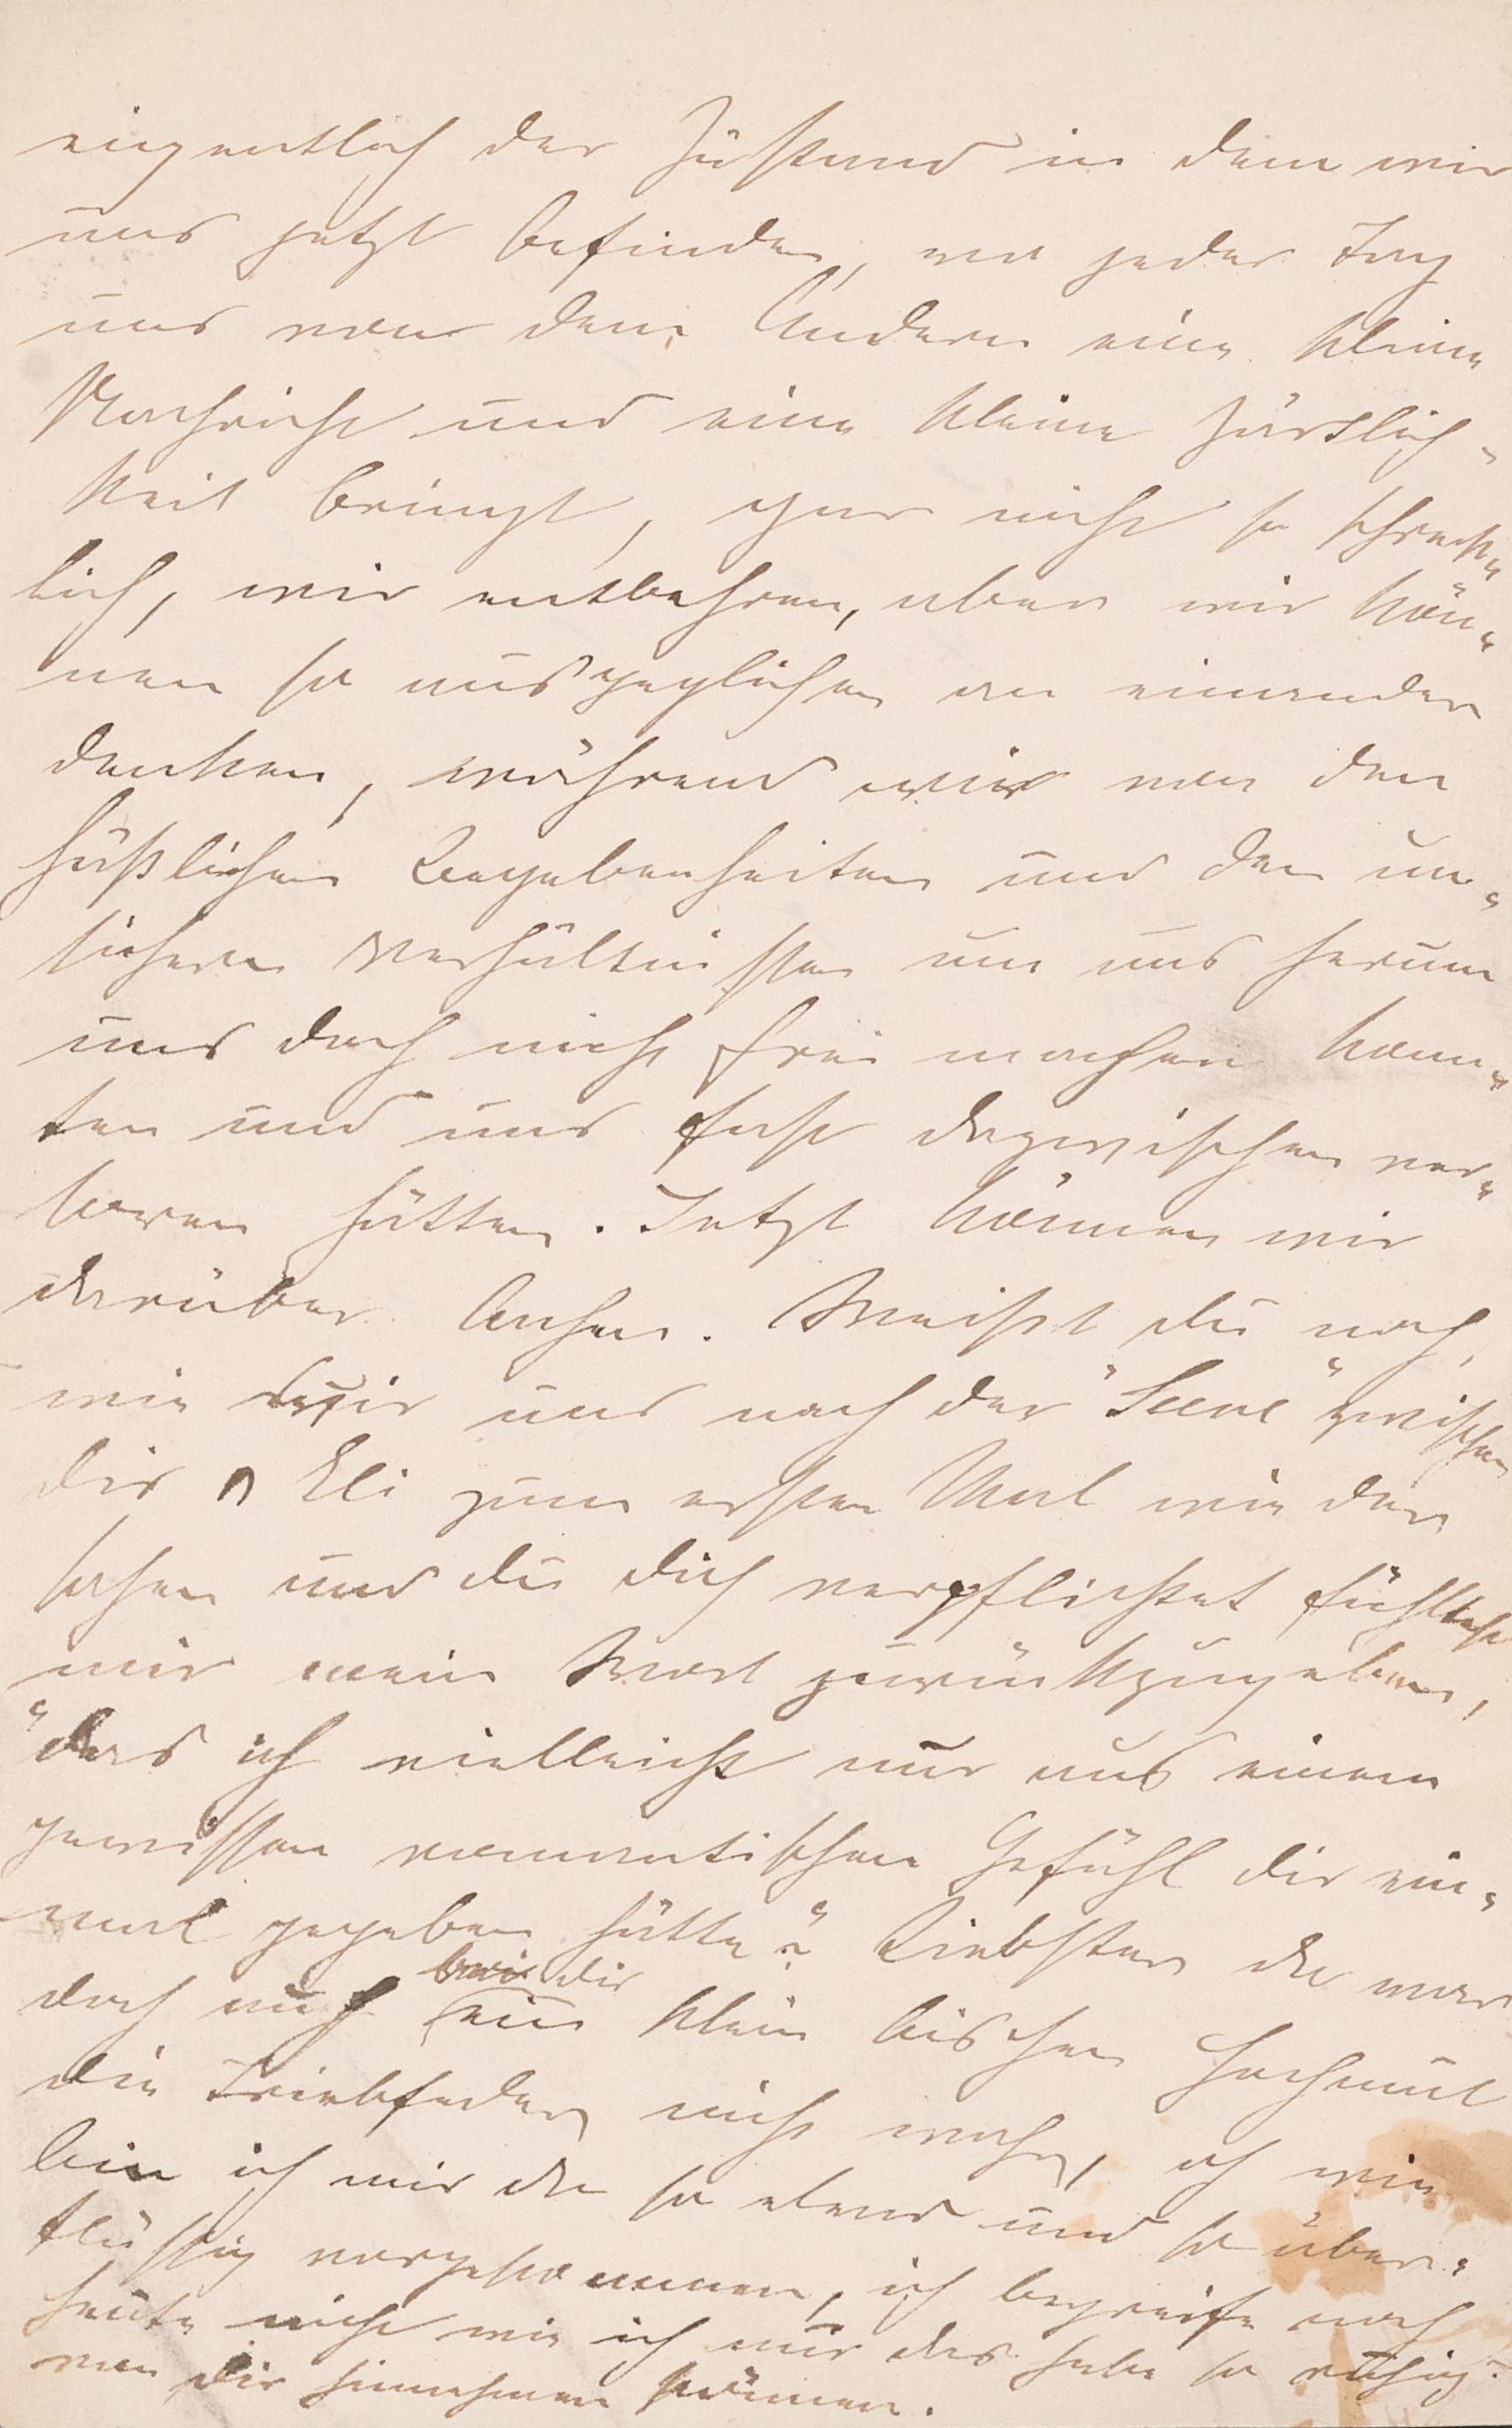 eigentlich der Zustand in dem wir
uns jetzt befinden, wo jeder Tag
uns von dem Andern eine kleine
Nachricht und eine kleine Zärtlich-
keit bringt, gar nicht so schreck-
lich, wir entbehren, aber wir kön-
nen so ausgeglichen an einander
denken, während wir von den
häßlichen Begebenheiten und den un-
sichern Verhältnissen um uns herum
uns doch nicht frei machen konn-
ten und uns fast dazwischen ver-
loren hätten. Jetzt können wir
darüber lachen. Weißt du noch,
wie wir uns nach der "Scene" zwischen
dir & Eli zum ersten Mal wieder
sahen und du dich verpflichtet fühltest
mir mein Wort zurückzugeben,
"das ich vielleicht nur aus einem
gewissen romantischen Gefühl dir ein-
mal gegeben hätte"? Liebster da war
doch auch bei dir ein klein bischen Hochmut
die Triebfeder, nicht wahr, ach wie
bin ich mir da so elend und so über-
flüssig vorgekommen, ich begreife noch
heute nicht wie ich nur das habe so ruhig
von dir hinnehmen können.